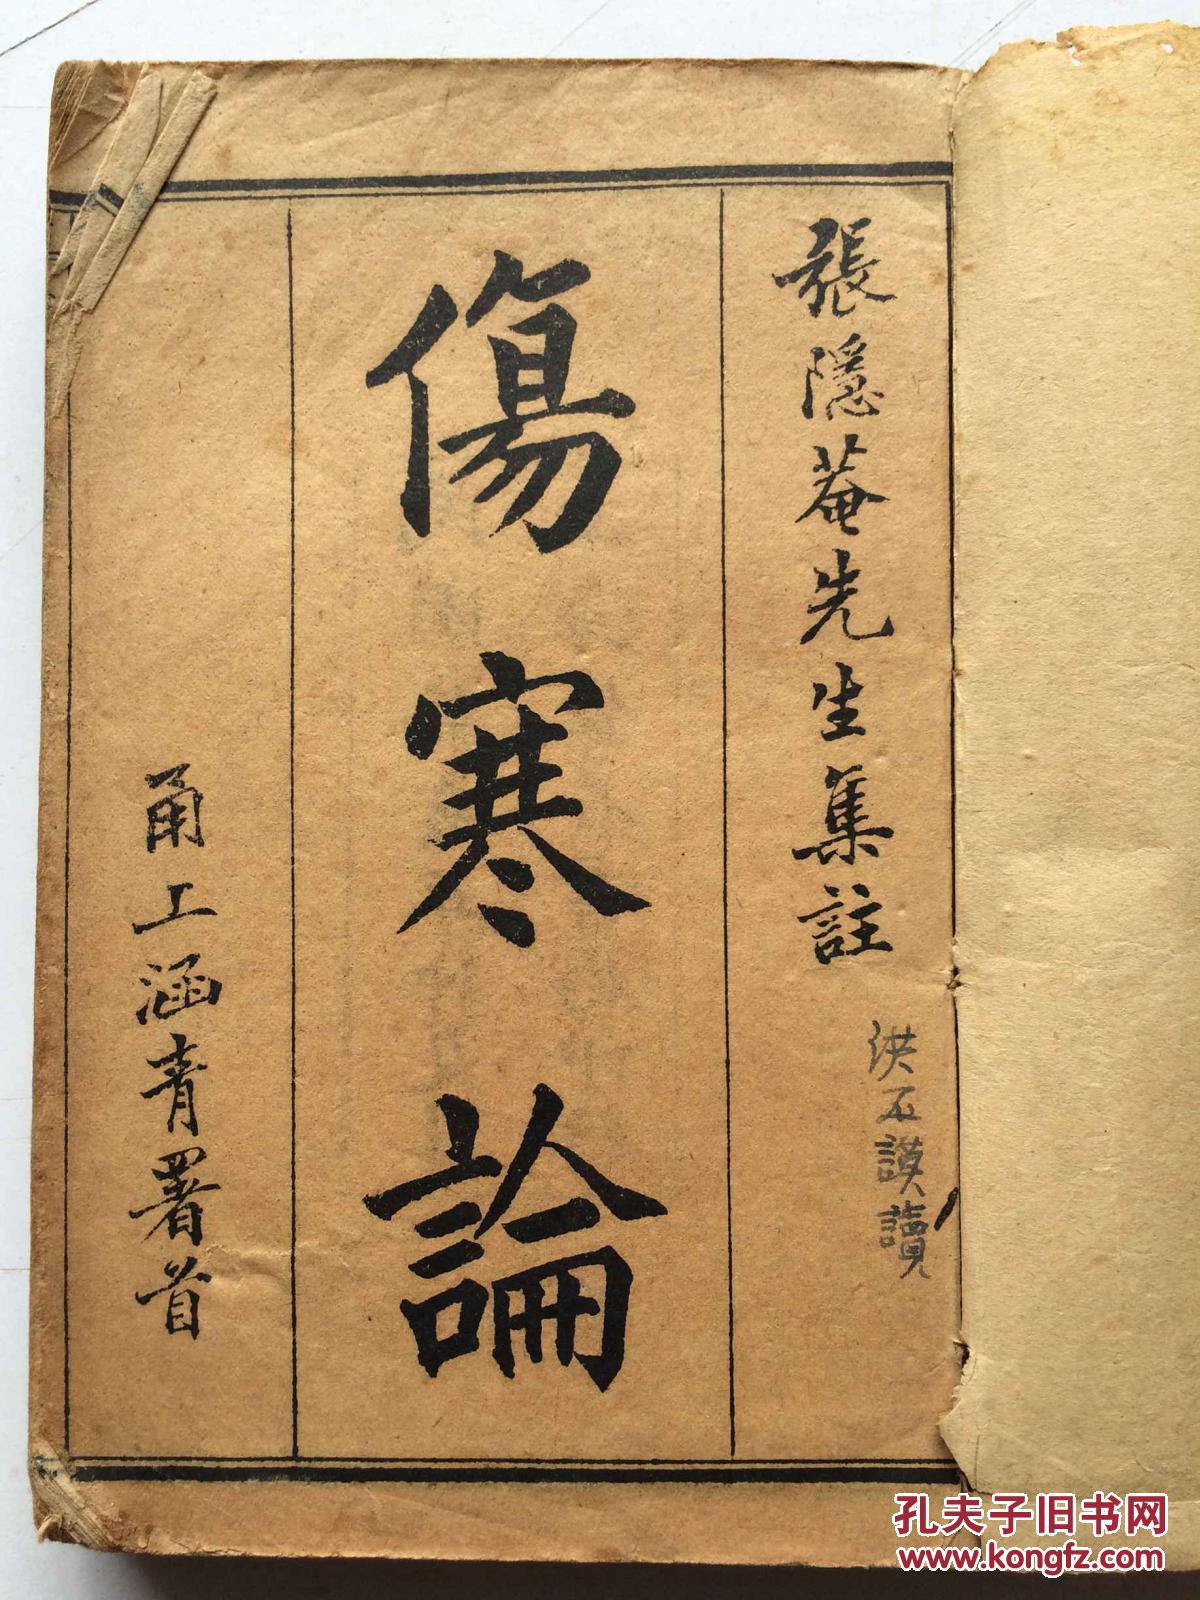 張隱菴先生集註
洪石謨讀
傷寒論
甬上涵青署首
孔夫子旧书网
www.kongfz.com